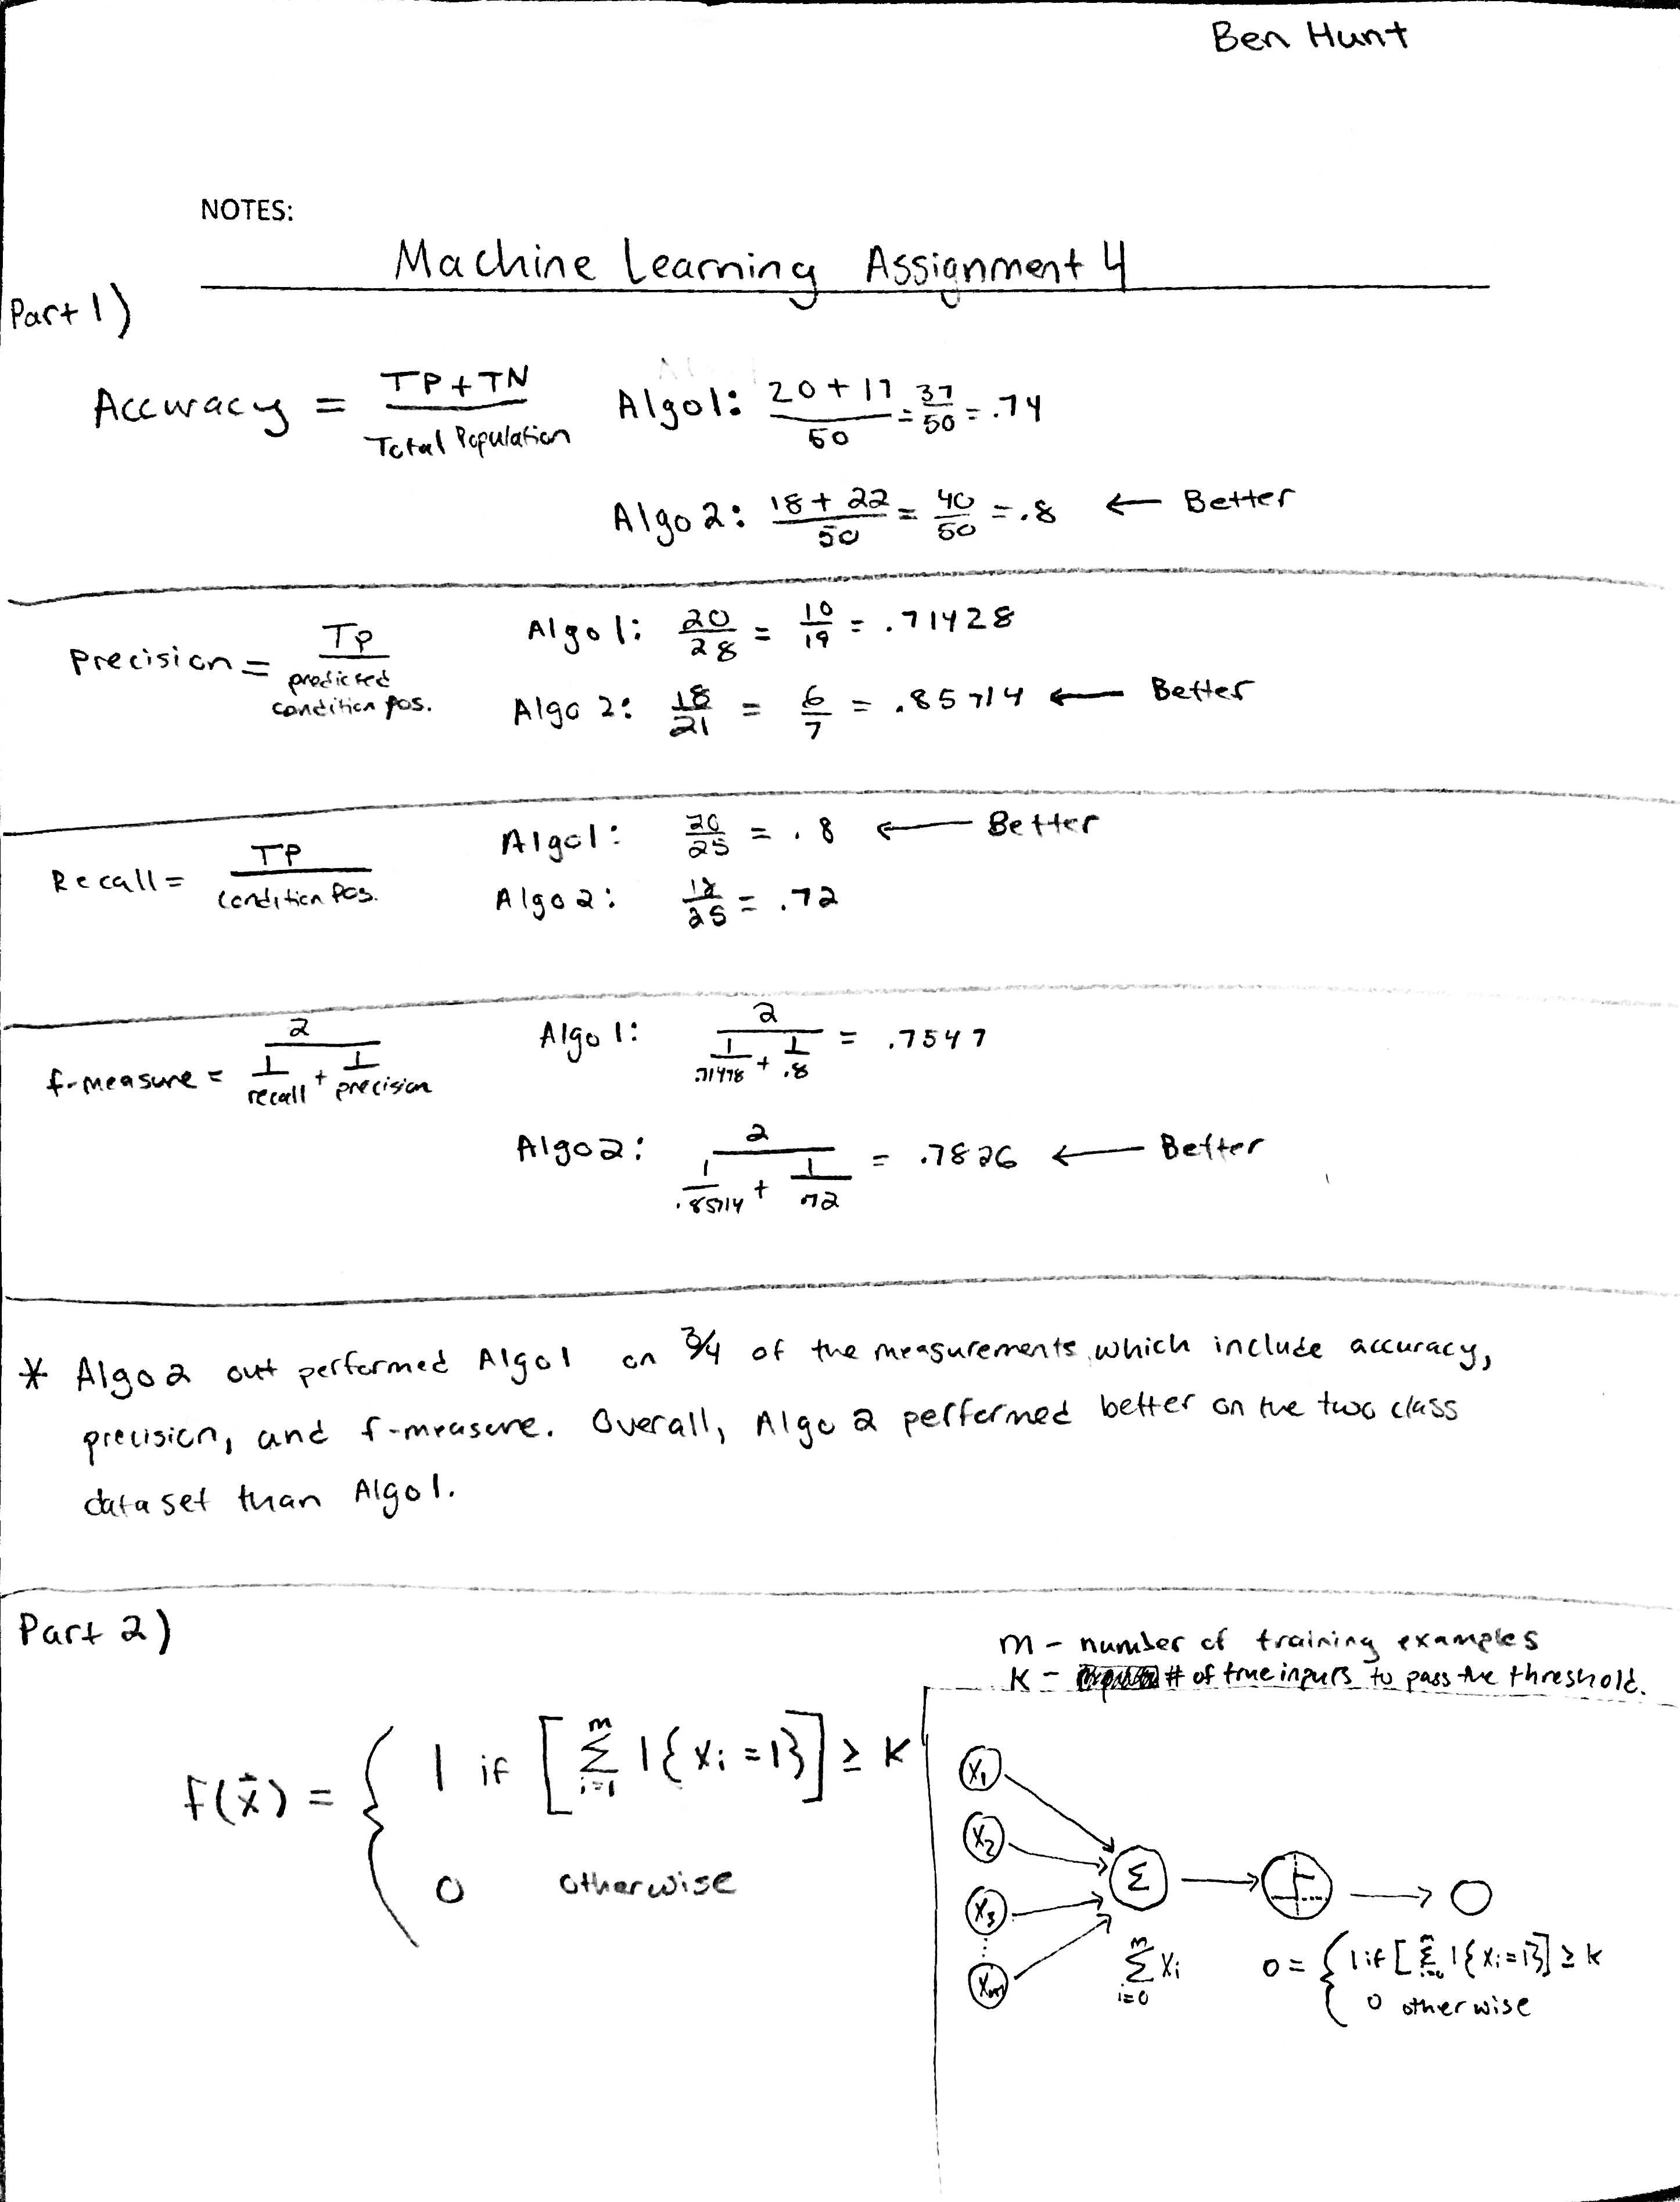 Ben Hunt
NOTES:
Machine Learning Assignment 4
Part 1)
Accuracy = TP + TN / Total Population Algo1: 20 + 17 / 50 = 37/50 = .74
Algo 2: 18 + 22 / 50 = 40/50 = .8 ← Better
Precision = TP / predicted condition pos. Algo 1: 20/28 = 10/19 = .71428
Algo 2: 18/21 = 6/7 = .85714 ← Better
Recall = TP / condition Pos. Algo1: 20/25 = .8 ← Better
Algo 2: 18/25 = .72
f-measure = 2 / (1/recall + 1/precision) Algo 1: 2 / (1/.71478 + 1/.8) = .7547
Algo 2: 2 / (1/.85714 + 1/.72) = .7826 ← Better
* Algo 2 out performed Algo1 on 3/4 of the measurements which include accuracy,
precision, and f-measure. Overall, Algo 2 performed better on the two class
data set than Algo1.
Part 2)
m - number of training examples
K - # of true inputs to pass the threshold.
f(x⃗) = { 1 if [Σ_{i=1}^{m} 1{Xi = 1}] ≥ K
0 otherwise
X1
X2
X3
Xm
Σ
Σ_{i=0}^{m} Xi
O = { 1 if [Σ_{i=0}^{m} 1{Xi=1}] ≥ K
0 otherwise